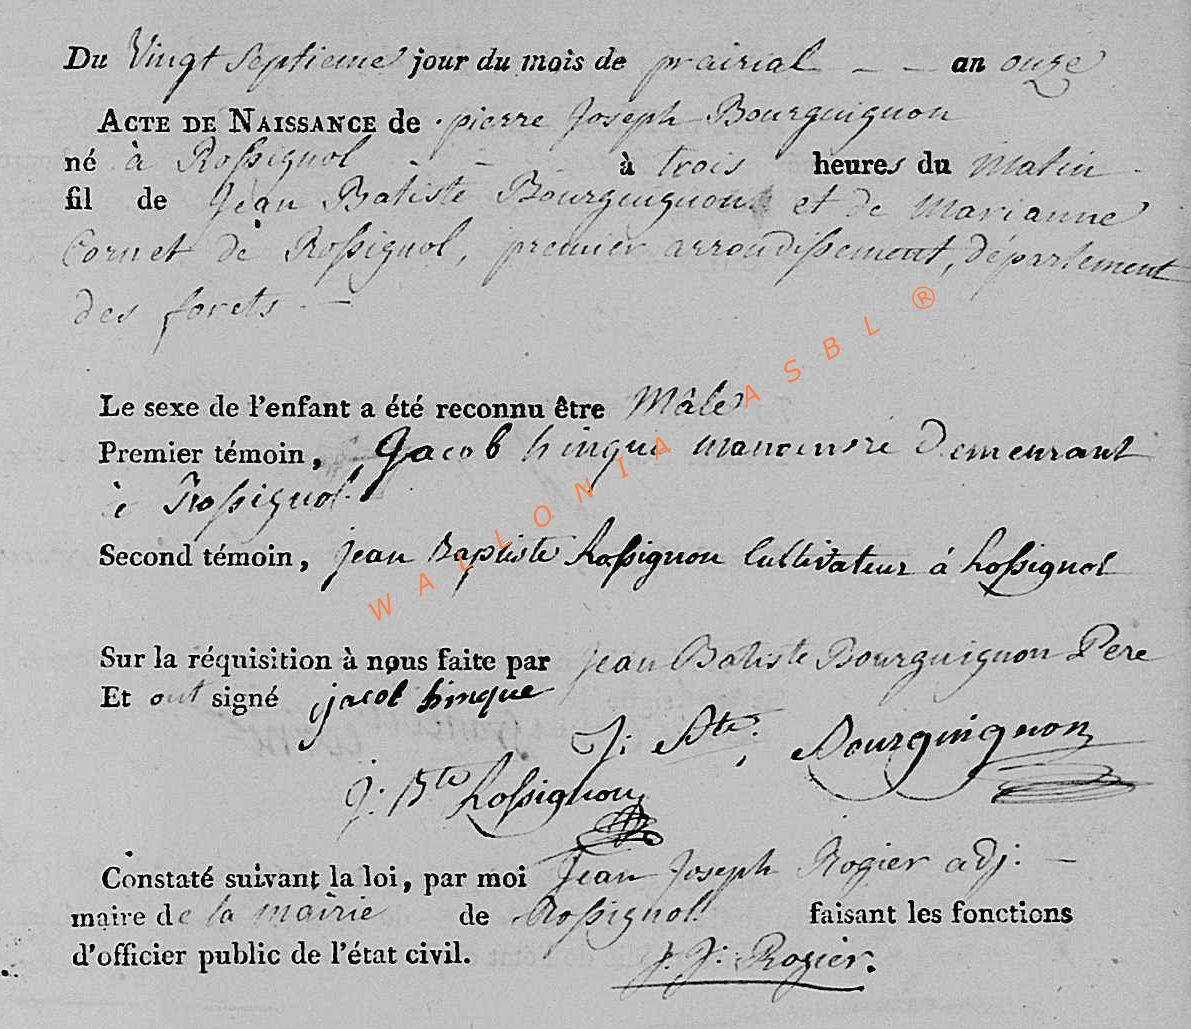 Du Vingt Septieme jour du mois de prairial — — an onze
ACTE DE NAISSANCE de pierre Joseph Bourguignon
né à Rossignol - - à trois heures du Matin
fil de Jean Batiste Bourguignon et de Marianne
Cornet de Rossignol, premier arrondissement, département
des forets —
Le sexe de l'enfant a été reconnu être Mâle
Premier témoin, Jacob hinque Demeurant
à Rossignol
Second témoin, jean Baptiste hossignon Cultivateur á Rossignol
Sur la réquisition à nous faite par jean Batiste Bourguignon Pere
Et ont signé jacob hinque
J: Bte, Bourguignon
J: Bte hossignon
Constaté suivant la loi, par moi Jean Joseph Rogier adj: —
maire de la mairie de Rossignol faisant les fonctions
d'officier public de l'état civil. J. J: Rogier.
WALLONIA ASBL ®